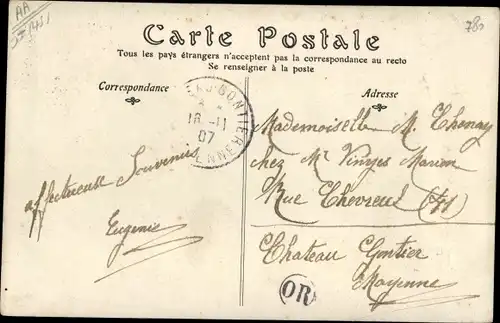 Carte Postale
Tous les pays étrangers n'acceptent pas la correspondance au recto
Se renseigner à la poste
Correspondance
Adresse
affectueux Souvenirs
Eugenie
16-11
07
Mademoiselle M. Chenay
chez Mr Vinges Marion
Rue Chevreul
Chateau Gontier
Mayenne
OR